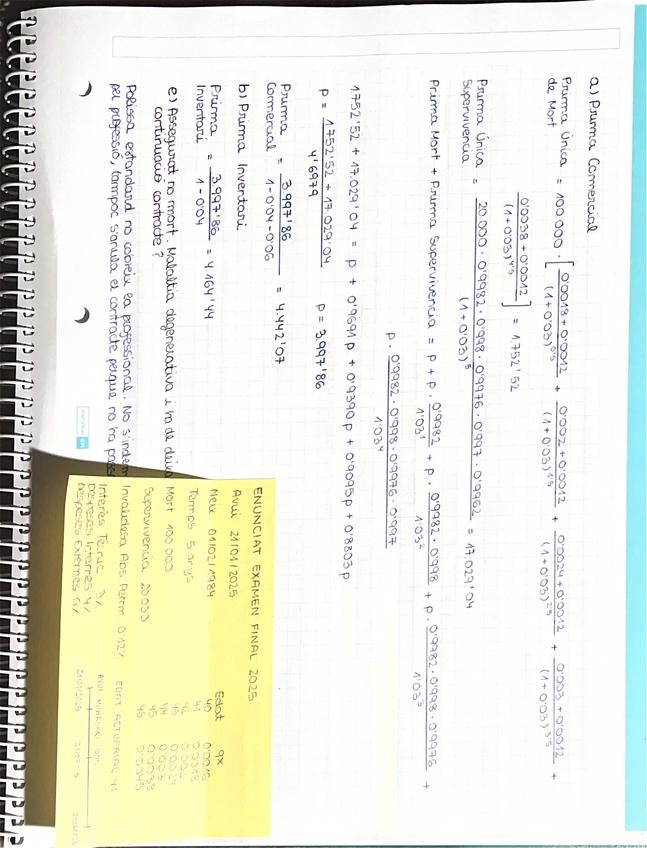 a) Prima Comercial
Prima Única de Mort = 100 000 · [ (0'0018 + 0'0012)/(1+0'03)^0'5 + (0'002 + 0'0012)/(1+0'03)^1'5 + (0'0024 + 0'0012)/(1+0'03)^2'5 + (0'003 + 0'0012)/(1+0'03)^3'5 +
(0'0038 + 0'0012)/(1+0'03)^4'5 ] = 1752'52
Prima Única Supervivencia = (20.000 · 0'9982 · 0'998 · 0'9976 · 0'997 · 0'9962)/(1+0'03)^5 = 17.029'04
Prima Mort + Prima Supervivencia = p + p · 0'9982/1'03^1 + p · (0'9982 · 0'998)/1'03^2 + p · (0'9982 · 0'998 · 0'9976)/1'03^3 +
p · (0'9982 · 0'998 · 0'9976 · 0'997)/1'03^4
1752'52 + 17.029'04 = p + 0'9691p + 0'9390p + 0'9095p + 0'8803p
p = (1752'52 + 17.029'04)/4'6979 p = 3.997'86
Prima Comercial = 3.997'86/(1-0'04-0'06) = 4.442'07
b) Prima Inventari
Prima Inventari = 3.997'86/(1-0'04) = 4.164'44
e) Assegurat no mort. Malaltia degenerativa i ha de deixa
continuació contracte?
Polissa estandard no cobreix ea professional. No s'indem
pel professió, tampoc s'anula el contracte perque no ha pass
ENUNCIAT EXAMEN FINAL 2025
Avui 21/01/2025
Neix 01/02/1984
Temps 5 anys
Mort 100.000
Supervivencia 20.000
Invalidesa Abs Perm 0'12%
Interès Tècnic 3%
Despeses Internes 4%
Despeses Externes 6%
Edat qx
40 0'0016
41 0'0018
42 0'002
43 0'0024
44 0'003
45 0'0038
46 0'0045
EDAT ACTUARIAL 41
21/01/2025